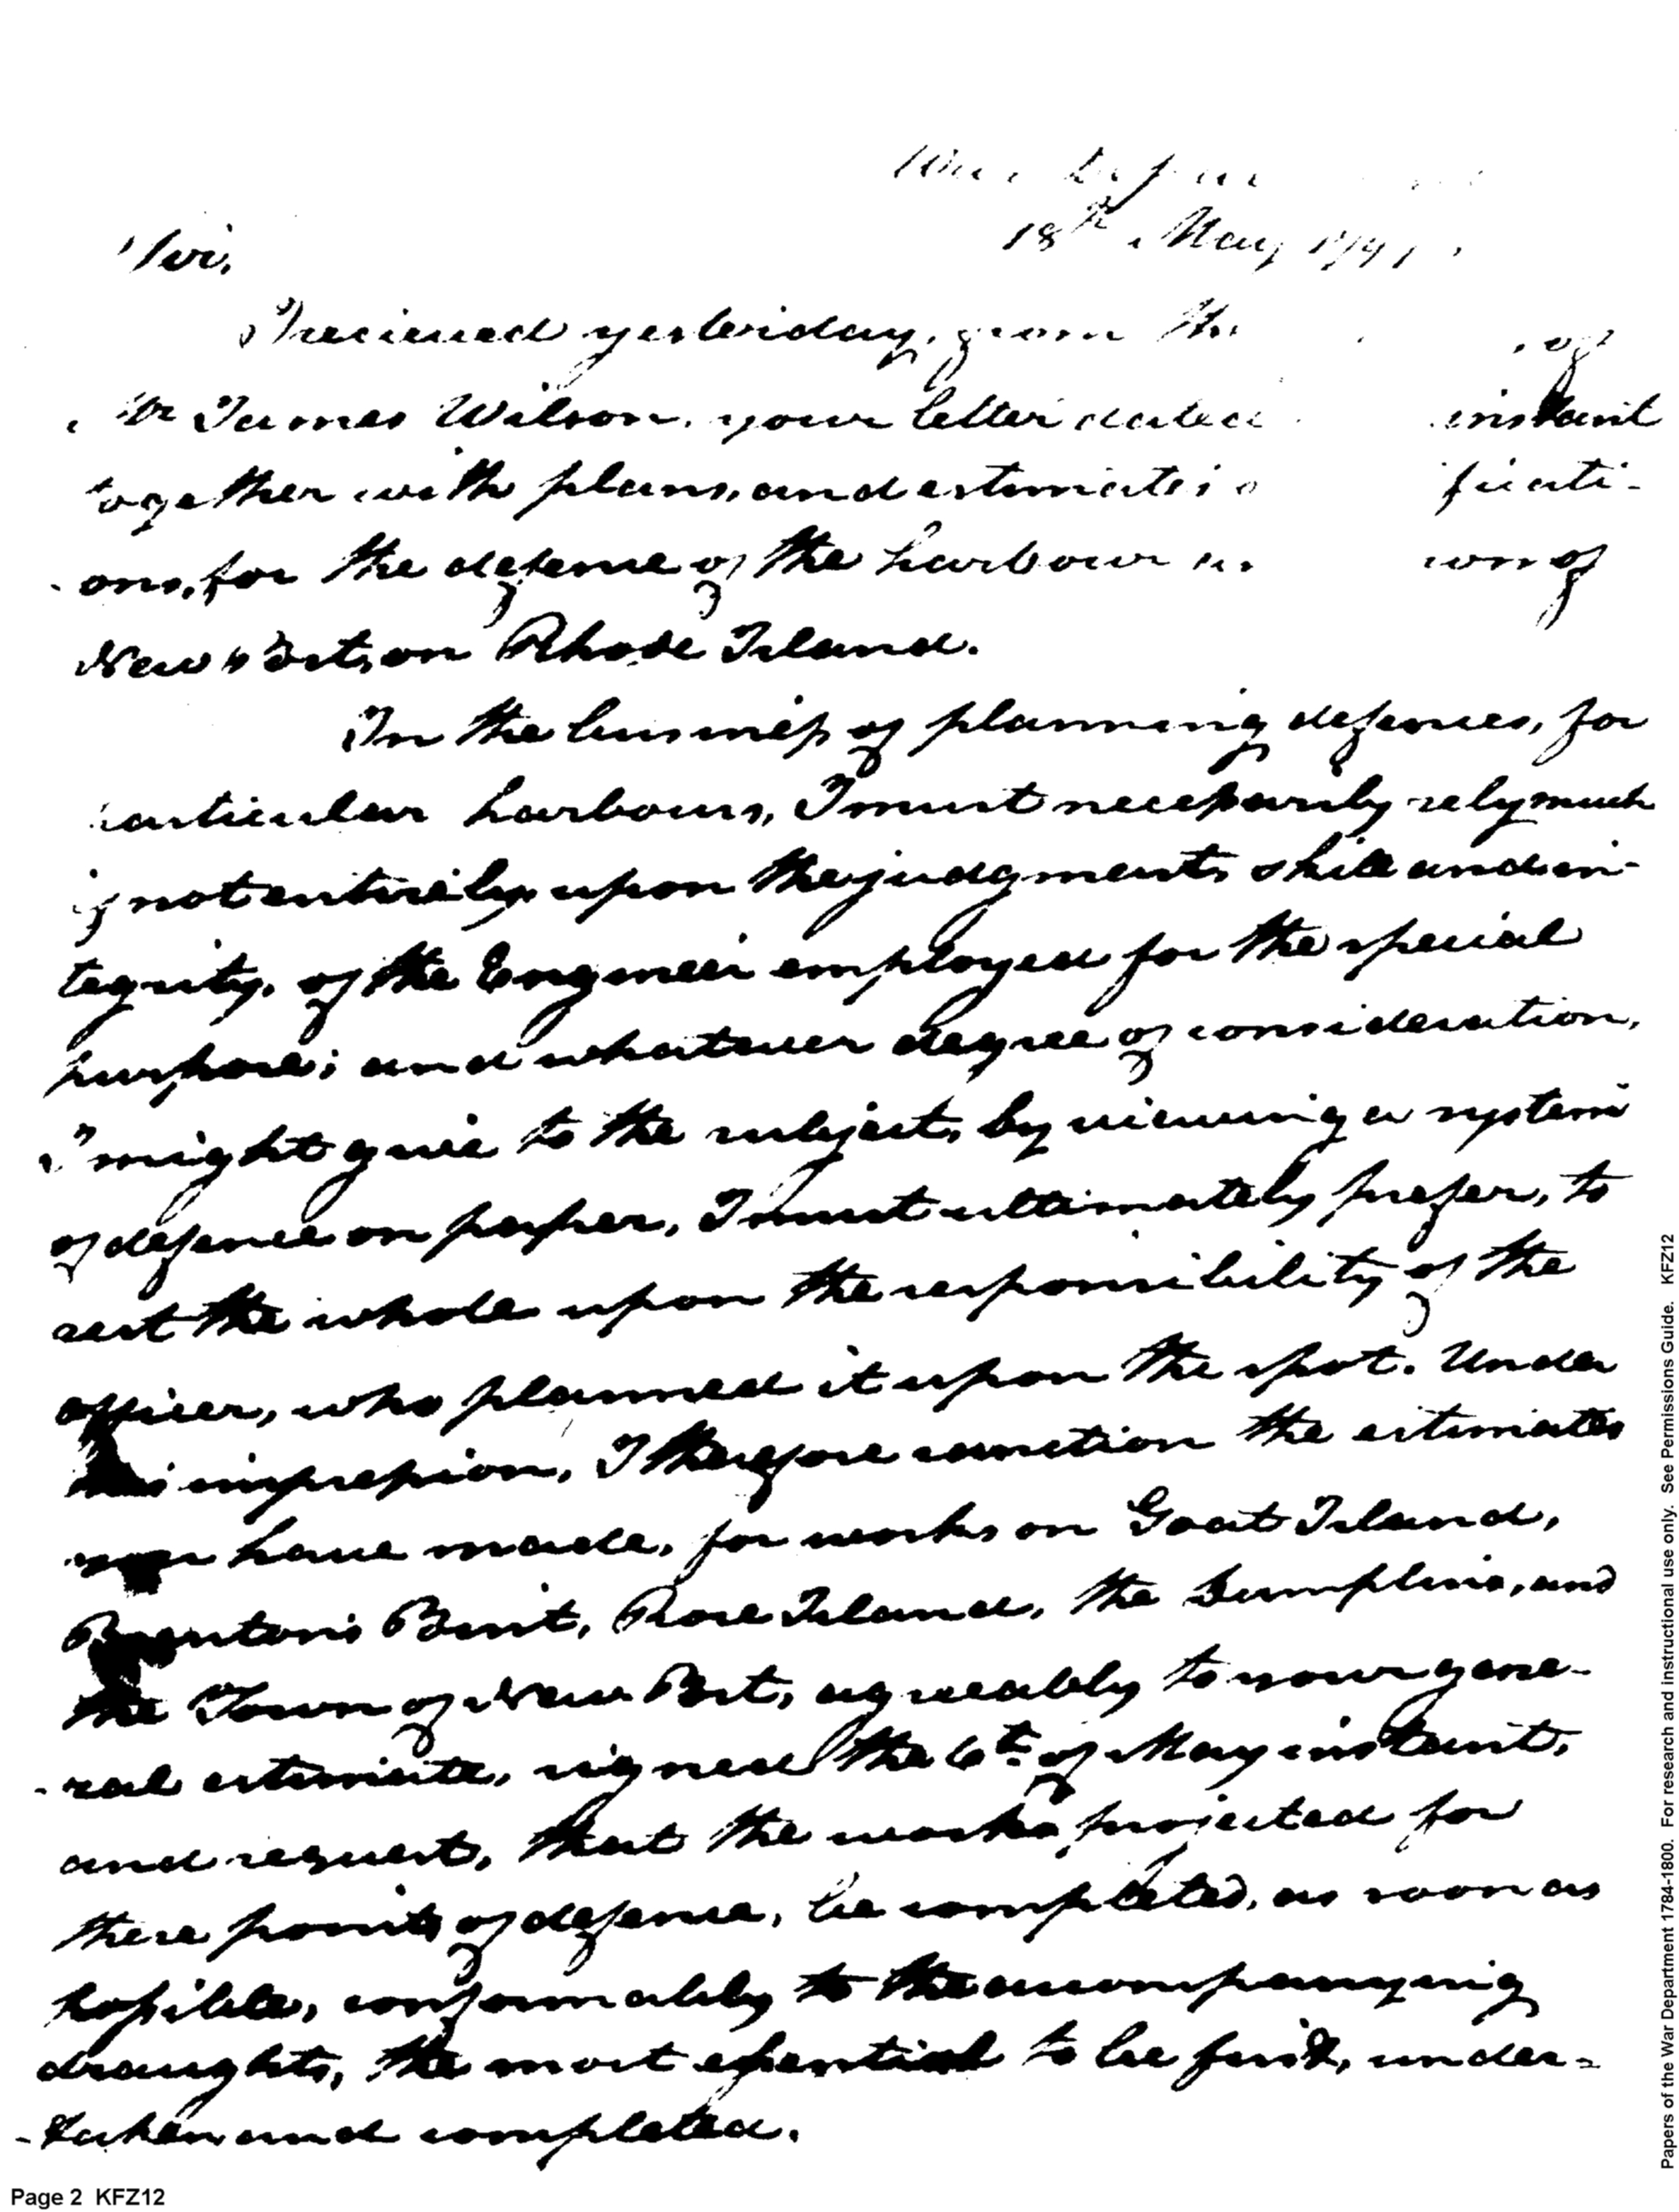 War Depar
18th May 179
Sir,
I recieved yesterday, from the of
Mr James Wilson, your letter dated instant
together with plans, and estimates ficati-
- ons, for the defence of the harbour of
New Port, on Rhode Island.
In the business of planning defences, for
particular harbours, I must necessarily rely much
if not entirely, upon the judgment, skill and in-
tegrity, of the Engineer employed for the special
purpose; and whatever degree of consideration,
I might give to the subject, by viewing a system
of defence on paper, I must ultimately prefer, to
rest the whole upon the responsibility of the
officer, who planned it upon the spot. Under
this impression, I therefore sanction the estimates
you have made, for works on Goat Island,
Brentons Point, Rose Island, the Dumplins, and
the Town of New Port, agreeably to your gene-
- ral estimate, signed the 6th of May instant,
and request, that the works, projected for
these points of defence, be completed, as soon as
possible, conformably to the accompanying
draughts, the most essential to be first, under-
- taken and completed.
Page 2 KFZ12
Papers of the War Department 1784-1800. For research and instructional use only. See Permissions Guide. KFZ12